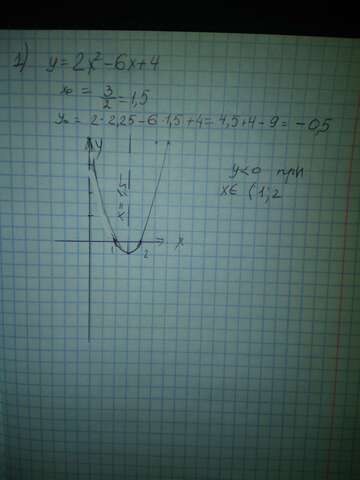 1) y=2x²-6x+4
x₀ = 3/2 = 1,5
y₀ = 2·2,25-6·1,5+4=4,5+4-9=-0,5
y
x=1,5
y<0 при
x∈ (1;2
1 2 x